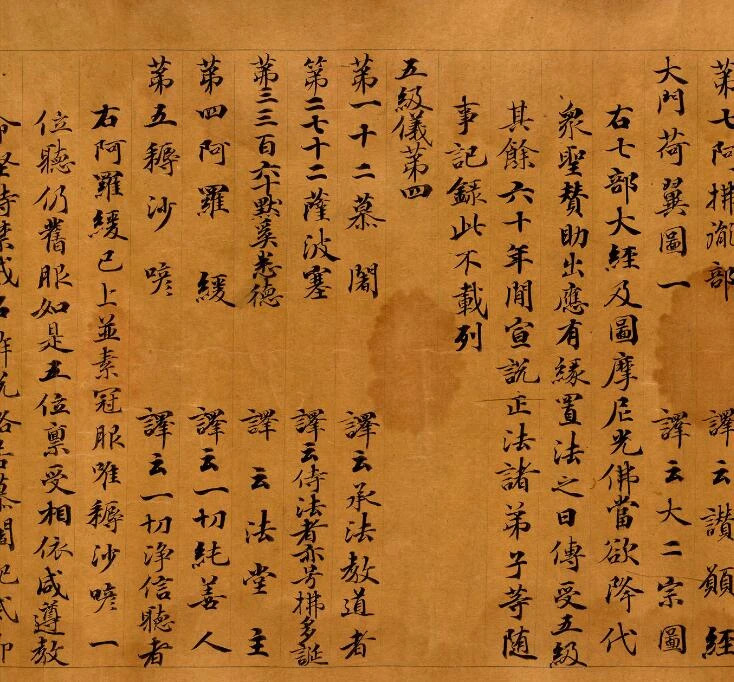 第七阿拂胤部 譯云讚願經
大門荷翼圖一 譯云大二宗圖
右七部大經及圖摩尼光佛當欲降代
衆聖贊助出應有緣置法之日傳受五級
其餘六十年間宣説正法諸弟子等随
事記録此不載列
五級儀第四
第一十二慕闍 譯云承法教道者
第二七十二薩波塞 譯云侍法者亦号拂多誕
第三三百六十默奚悉德 譯云法堂主
第四阿羅緩 譯云一切純善人
第五耨沙喭 譯云一切净信聽者
右阿羅緩已上並素冠服唯耨沙喭一
位聽仍舊服如是五位禀受相依咸遵教
命堅持禁戒名解脱路若慕闍犯戒即